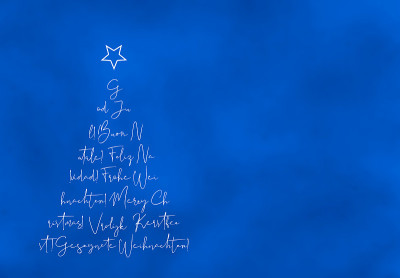 G
od Ju
l! Buon N
atale! Feliz Na
vidad! Frohe Wei
hnachten! Merry Ch
ristmas! Vrolijk Kerstfee
st! Gesegnete Weihnachten!